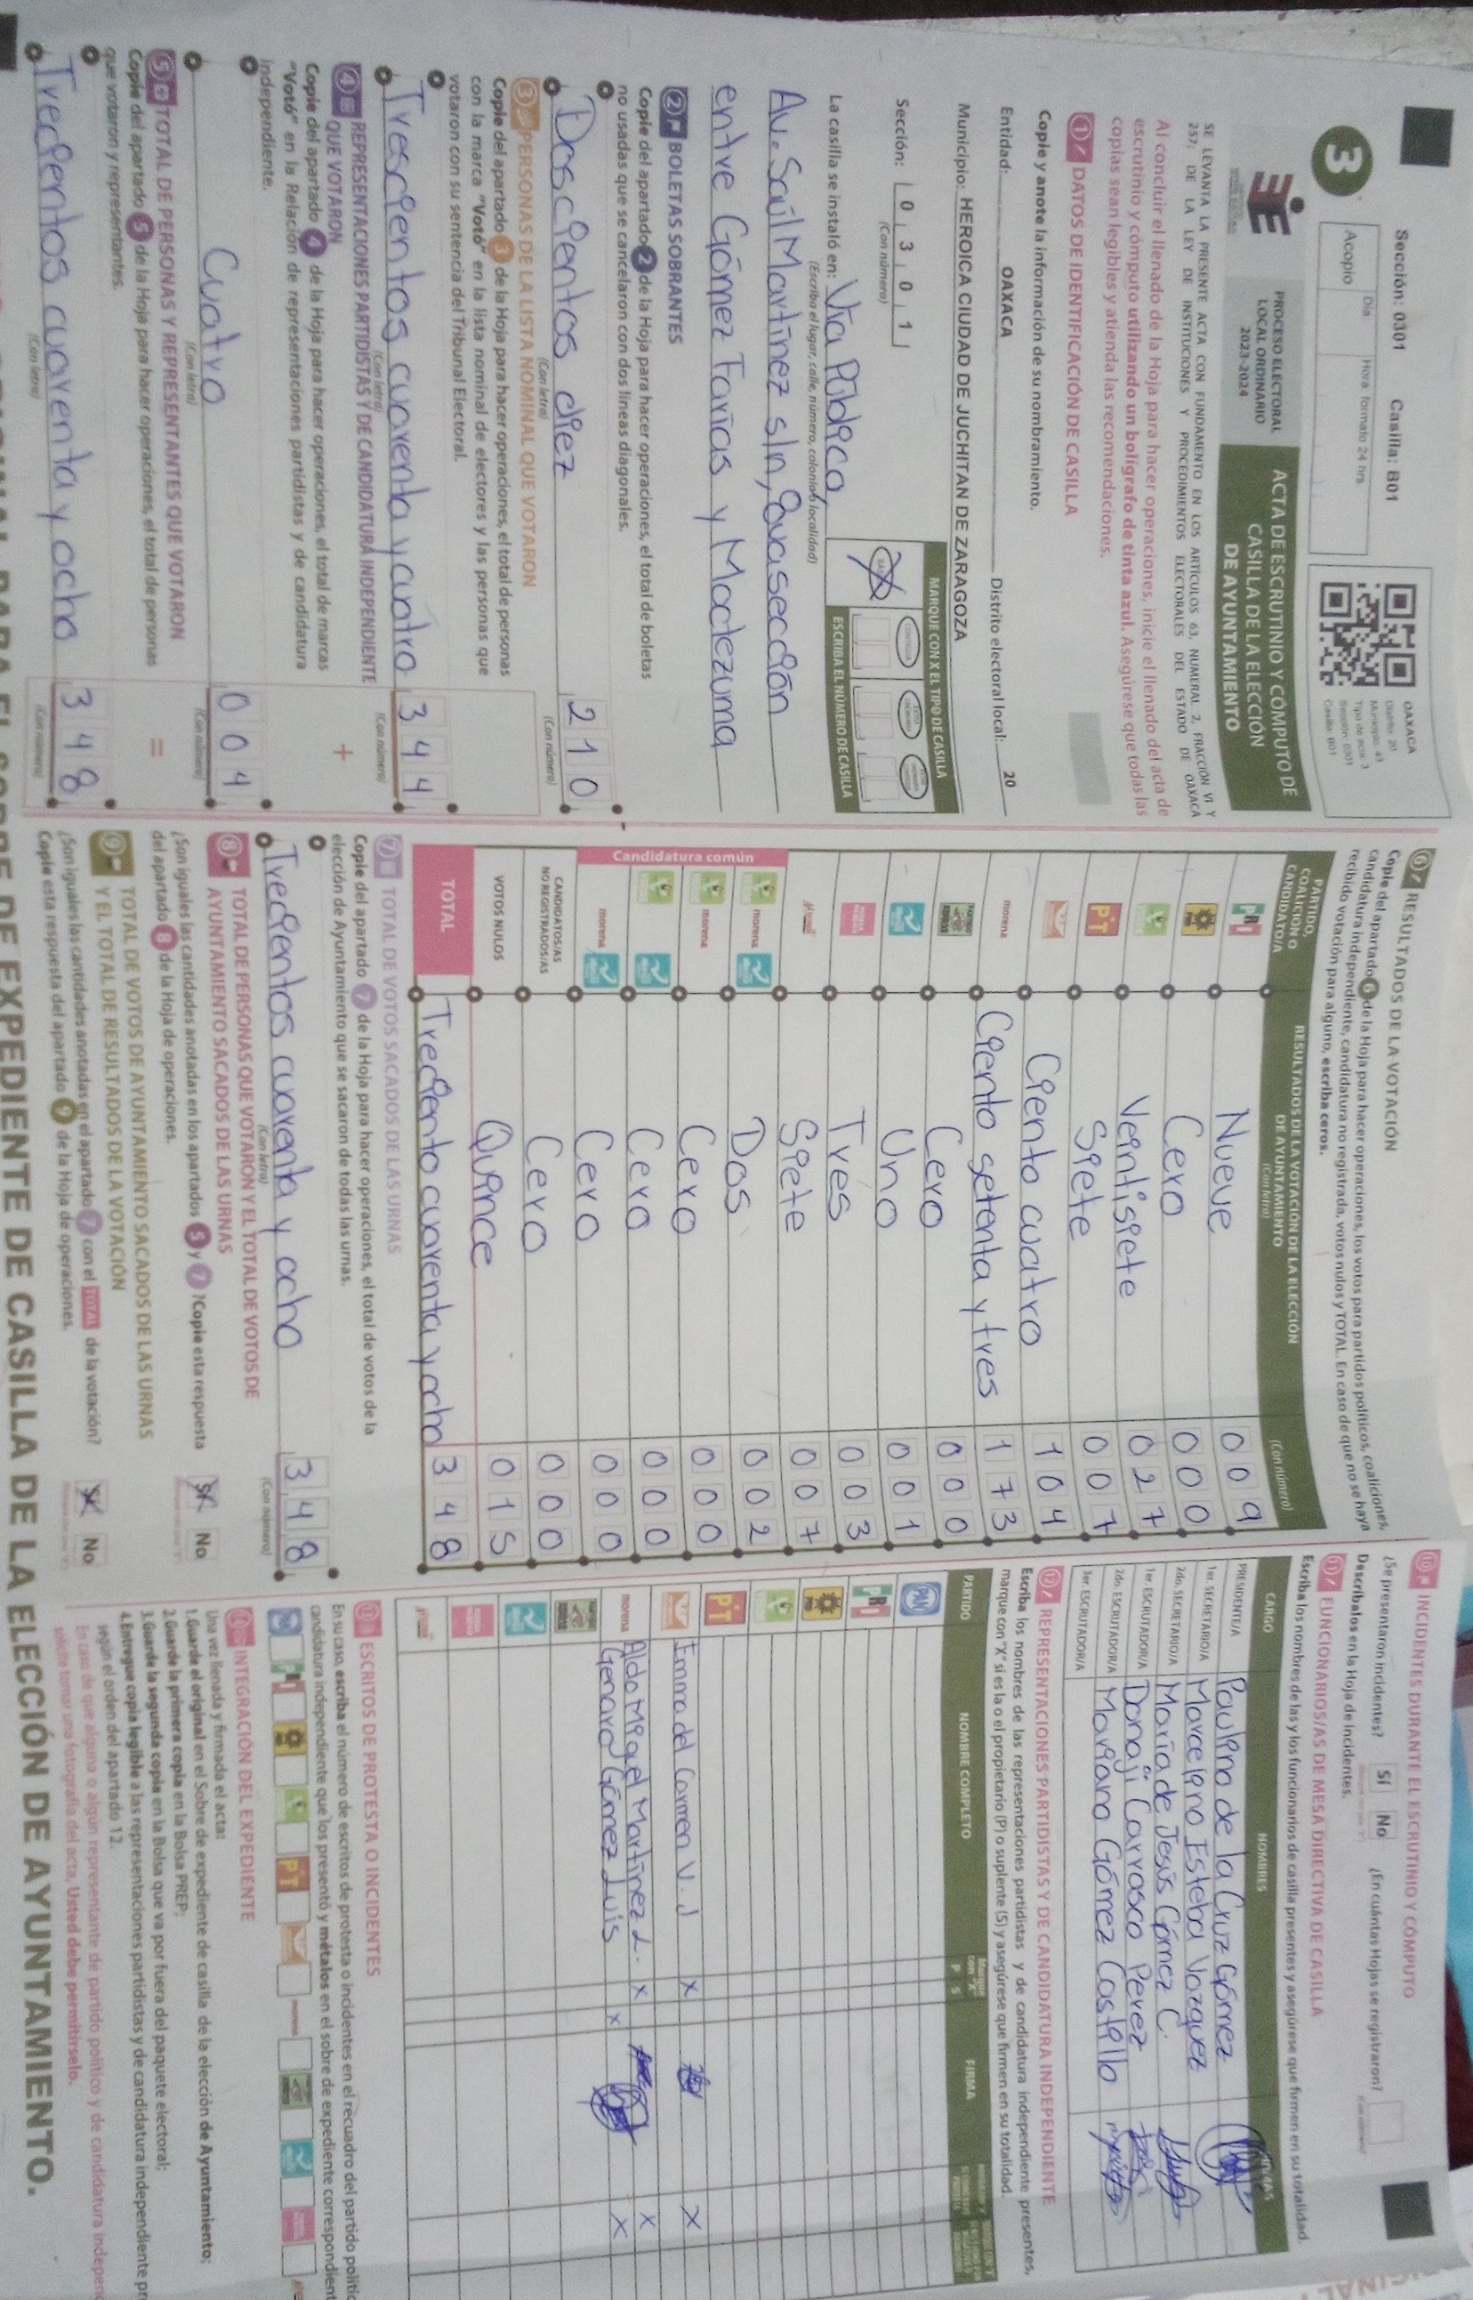 Sección: 0301 Casilla: B01
3
Acopio
Día
Hora: formato 24 hrs
OAXACA
Distrito: 20
Municipio: 43
Tipo de acta: 3
Sección: 0301
Casilla: B01
PROCESO ELECTORAL
LOCAL ORDINARIO
2023-2024
ACTA DE ESCRUTINIO Y CÓMPUTO DE
CASILLA DE LA ELECCIÓN
DE AYUNTAMIENTO
SE LEVANTA LA PRESENTE ACTA CON FUNDAMENTO EN LOS ARTÍCULOS 63, NUMERAL 2, FRACCIÓN VI Y
257; DE LA LEY DE INSTITUCIONES Y PROCEDIMIENTOS ELECTORALES DEL ESTADO DE OAXACA
Al concluir el llenado de la Hoja para hacer operaciones, inicie el llenado del acta de
escrutinio y cómputo utilizando un bolígrafo de tinta azul. Asegúrese que todas las
copias sean legibles y atienda las recomendaciones.
1 DATOS DE IDENTIFICACIÓN DE CASILLA
Copie y anote la información de su nombramiento.
Entidad: OAXACA Distrito electoral local: 20
Municipio: HEROICA CIUDAD DE JUCHITAN DE ZARAGOZA
Sección: 0 3 0 1
(Con número)
MARQUE CON X EL TIPO DE CASILLA
ESCRIBA EL NÚMERO DE CASILLA
La casilla se instaló en: Vía Pública
(Escriba el lugar, calle, número, colonia o localidad)
Av. Saúl Martínez s/n, 9va sección
entre Gómez Farías y Moctezuma
2 BOLETAS SOBRANTES
Copie del apartado 2 de la Hoja para hacer operaciones, el total de boletas
no usadas que se cancelaron con dos líneas diagonales.
Doscientos diez 2 1 0
(Con letra) (Con número)
3 PERSONAS DE LA LISTA NOMINAL QUE VOTARON
Copie del apartado 3 de la Hoja para hacer operaciones, el total de personas
con la marca "Votó" en la lista nominal de electores y las personas que
votaron con su sentencia del Tribunal Electoral.
Trescientos cuarenta y cuatro 3 4 4
(Con letra) (Con número)
4 REPRESENTACIONES PARTIDISTAS Y DE CANDIDATURA INDEPENDIENTE
QUE VOTARON
+
Copie del apartado 4 de la Hoja para hacer operaciones, el total de marcas
"Votó" en la Relación de representaciones partidistas y de candidatura
independiente.
Cuatro 0 0 4
(Con letra) (Con número)
5 TOTAL DE PERSONAS Y REPRESENTANTES QUE VOTARON
=
Copie del apartado 5 de la Hoja para hacer operaciones, el total de personas
que votaron y representantes.
Trecientos cuarenta y ocho 3 4 8
(Con letra) (Con número)
6 RESULTADOS DE LA VOTACIÓN
Copie del apartado 6 de la Hoja para hacer operaciones, los votos para partidos políticos, coaliciones,
candidatura independiente, candidatura no registrada, votos nulos y TOTAL. En caso de que no se haya
recibido votación para alguno, escriba ceros.
PARTIDO,
COALICIÓN O
CANDIDATO/A
RESULTADOS DE LA VOTACIÓN DE LA ELECCIÓN
DE AYUNTAMIENTO
(Con letra) (Con número)
PRI Nueve 0 0 9
PRD Cero 0 0 0
Veintisiete 0 2 7
PT Siete 0 0 7
Ciento cuatro 1 0 4
morena Ciento setenta y tres 1 7 3
Cero 0 0 0
Uno 0 0 1
Tres 0 0 3
Siete 0 0 7
Candidatura común
morena Dos 0 0 2
morena Cero 0 0 0
Cero 0 0 0
morena Cero 0 0 0
CANDIDATOS/AS
NO REGISTRADOS/AS Cero 0 0 0
VOTOS NULOS Quince 0 1 5
TOTAL Treciento cuarenta y ocho 3 4 8
7 TOTAL DE VOTOS SACADOS DE LAS URNAS
Copie del apartado 7 de la Hoja para hacer operaciones, el total de votos de la
elección de Ayuntamiento que se sacaron de todas las urnas.
Trecientos cuarenta y ocho 3 4 8
(Con letra) (Con número)
8 TOTAL DE PERSONAS QUE VOTARON Y EL TOTAL DE VOTOS DE
AYUNTAMIENTO SACADOS DE LAS URNAS
¿Son iguales las cantidades anotadas en los apartados 5 y 7? Copie esta respuesta
del apartado 8 de la Hoja de operaciones.
SÍ No
9 TOTAL DE VOTOS DE AYUNTAMIENTO SACADOS DE LAS URNAS
Y EL TOTAL DE RESULTADOS DE LA VOTACIÓN
¿Son iguales las cantidades anotadas en el apartado 7 con el TOTAL de la votación?
Copie esta respuesta del apartado 9 de la Hoja de operaciones.
SÍ No
10 INCIDENTES DURANTE EL ESCRUTINIO Y CÓMPUTO
¿Se presentaron incidentes? SÍ No ¿En cuántas Hojas se registraron?
Descríbalos en la Hoja de Incidentes.
11 FUNCIONARIOS/AS DE MESA DIRECTIVA DE CASILLA
Escriba los nombres de las y los funcionarios de casilla presentes y asegúrese que firmen en su totalidad.
CARGO NOMBRES FIRMAS
PRESIDENTE/A Paulino de la Cruz Gómez
1er. SECRETARIO/A Marcelino Esteba Vazquez
2do. SECRETARIO/A María de Jesús Gómez C.
1er. ESCRUTADOR/A Donaji Carrasco Perez
2do. ESCRUTADOR/A Mariano Gómez Castillo
3er. ESCRUTADOR/A
12 REPRESENTACIONES PARTIDISTAS Y DE CANDIDATURA INDEPENDIENTE
Escriba los nombres de las representaciones partidistas y de candidatura independiente presentes,
marque con "X" si es la o el propietario (P) o suplente (S) y asegúrese que firmen en su totalidad.
PARTIDO NOMBRE COMPLETO P S FIRMA
PAN
PRI
PRD
PT
Emma del Carmen V. J X X
morena Aldo Miguel Martínez L. X X
Genaro Gómez Luis X X
13 ESCRITOS DE PROTESTA O INCIDENTES
En su caso, escriba el número de escritos de protesta o incidentes en el recuadro del partido polític
candidatura independiente que los presentó y métalos en el sobre de expediente correspondient
PRI
PT
morena
INTEGRACIÓN DEL EXPEDIENTE
Una vez llenada y firmada el acta:
1. Guarde el original en el Sobre de expediente de casilla de la elección de Ayuntamiento;
2. Guarde la primera copia en la Bolsa PREP;
3. Guarde la segunda copia en la Bolsa que va por fuera del paquete electoral;
4. Entregue copia legible a las representaciones partidistas y de candidatura independiente pr
según el orden del apartado 12.
En caso de que alguna o algún representante de partido político y de candidatura independ
solicite tomar una fotografía del acta, Usted debe permitírselo.
DE EXPEDIENTE DE CASILLA DE LA ELECCIÓN DE AYUNTAMIENTO.